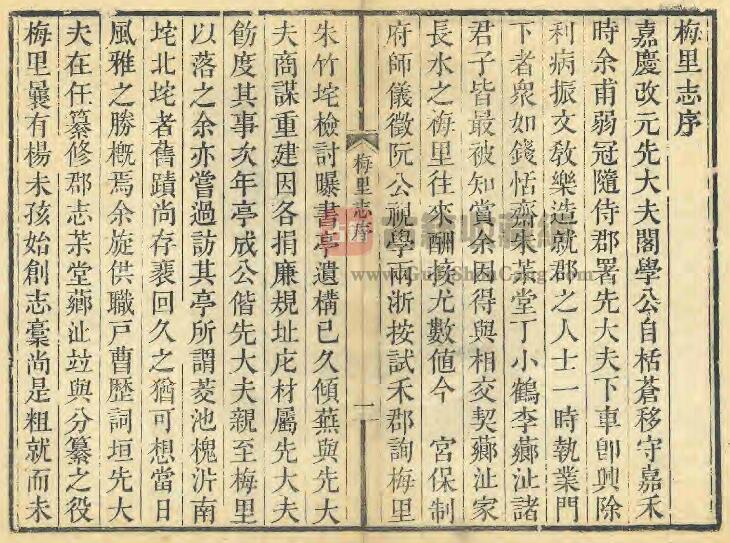 梅里志序
嘉慶改元先大夫閣學公自栝蒼移守嘉禾
時余甫弱冠隨侍郡署先大夫下車卽興除
利病振文敎樂造就郡之人士一時執業門
下者衆如錢恬齋朱茮堂丁小鶴李薌沚諸
君子皆最被知賞余因得與相交契薌沚家
長水之梅里往來酬接尤數值今 宮保制
府師儀徵阮公視學兩浙按試禾郡詢梅里
梅里志序
一
朱竹垞檢討曝書亭遺構已久傾蕪與先大
夫商謀重建因各捐廉規址庀材屬先大夫
飭度其事次年亭成公偕先大夫親至梅里
以落之余亦嘗過訪其亭所謂菱池槐沜南
垞北垞者舊蹟尚存裵回久之猶可想當日
風雅之勝槪焉余旋供職戸曹歷詞垣先大
夫在任纂修郡志茮堂薌沚竝與分纂之役
梅里曩有楊未孩始創志稾尚是粗就而未
www.GuJiShouCang.com